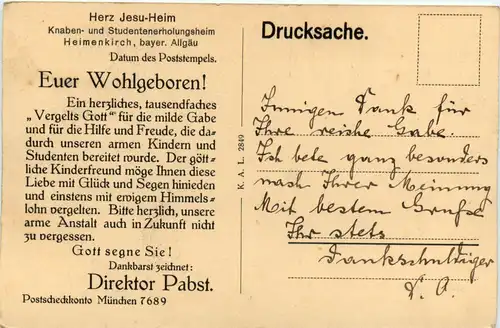 Herz Jesu-Heim
Knaben- und Studentenerholungsheim
Heimenkirch, bayer. Allgäu
Datum des Poststempels.
Euer Wohlgeboren!
Ein herzliches, tausendfaches
„Vergelts Gott" für die milde Gabe
und für die Hilfe und Freude, die da-
durch unseren armen Kindern und
Studenten bereitet wurde. Der gött-
liche Kinderfreund möge Ihnen diese
Liebe mit Glück und Segen hinieden
und einstens mit ewigem Himmels-
lohn vergelten. Bitte herzlich, unsere
arme Anstalt auch in Zukunft nicht
zu vergessen.
Gott segne Sie!
Dankbarst zeichnet:
Direktor Pabst.
Postscheckkonto München 7689
K. A. L. 2849
Drucksache.
Innigen Dank für
Ihre reiche Gabe.
Ich bete ganz besonders
nach Ihrer Meinung
Mit bestem Gruße
Ihr stets
dankschuldiger